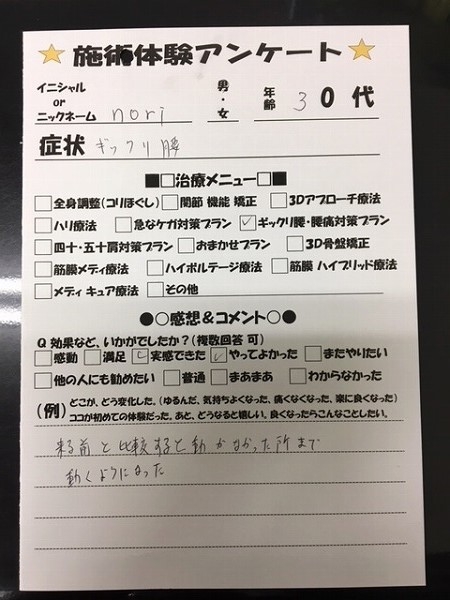 ☆施術体験アンケート☆
イニシャル
or
ニックネーム nori 男・女 年齢 30代
症状 ギックリ腰
■□治療メニュー□■
□全身調整(コリほぐし) □関節 機能 矯正 □3Dアプローチ療法
□ハリ療法 □急なケガ対策プラン ☑ギックリ腰・腰痛対策プラン
□四十・五十肩対策プラン □おまかせプラン □3D骨盤矯正
□筋膜メディ療法 □ハイボルテージ療法 □筋膜 ハイブリッド療法
□メディ キュア療法 □その他
●○感想&コメント○●
Q 効果など、いかがでしたか?(複数回答 可)
□感動 □満足 ☑実感できた ☑やってよかった □またやりたい
□他の人にも勧めたい □普通 □まあまあ □わからなかった
(例) どこが、どう変化した。(ゆるんだ、気持ちよくなった、痛くなくなった、楽に良くなった)
ココが初めての体験だった。あと、どうなると嬉しい。良くなったらこんなことしたい。
来る前と比較すると動かなかった所まで
動くようになった